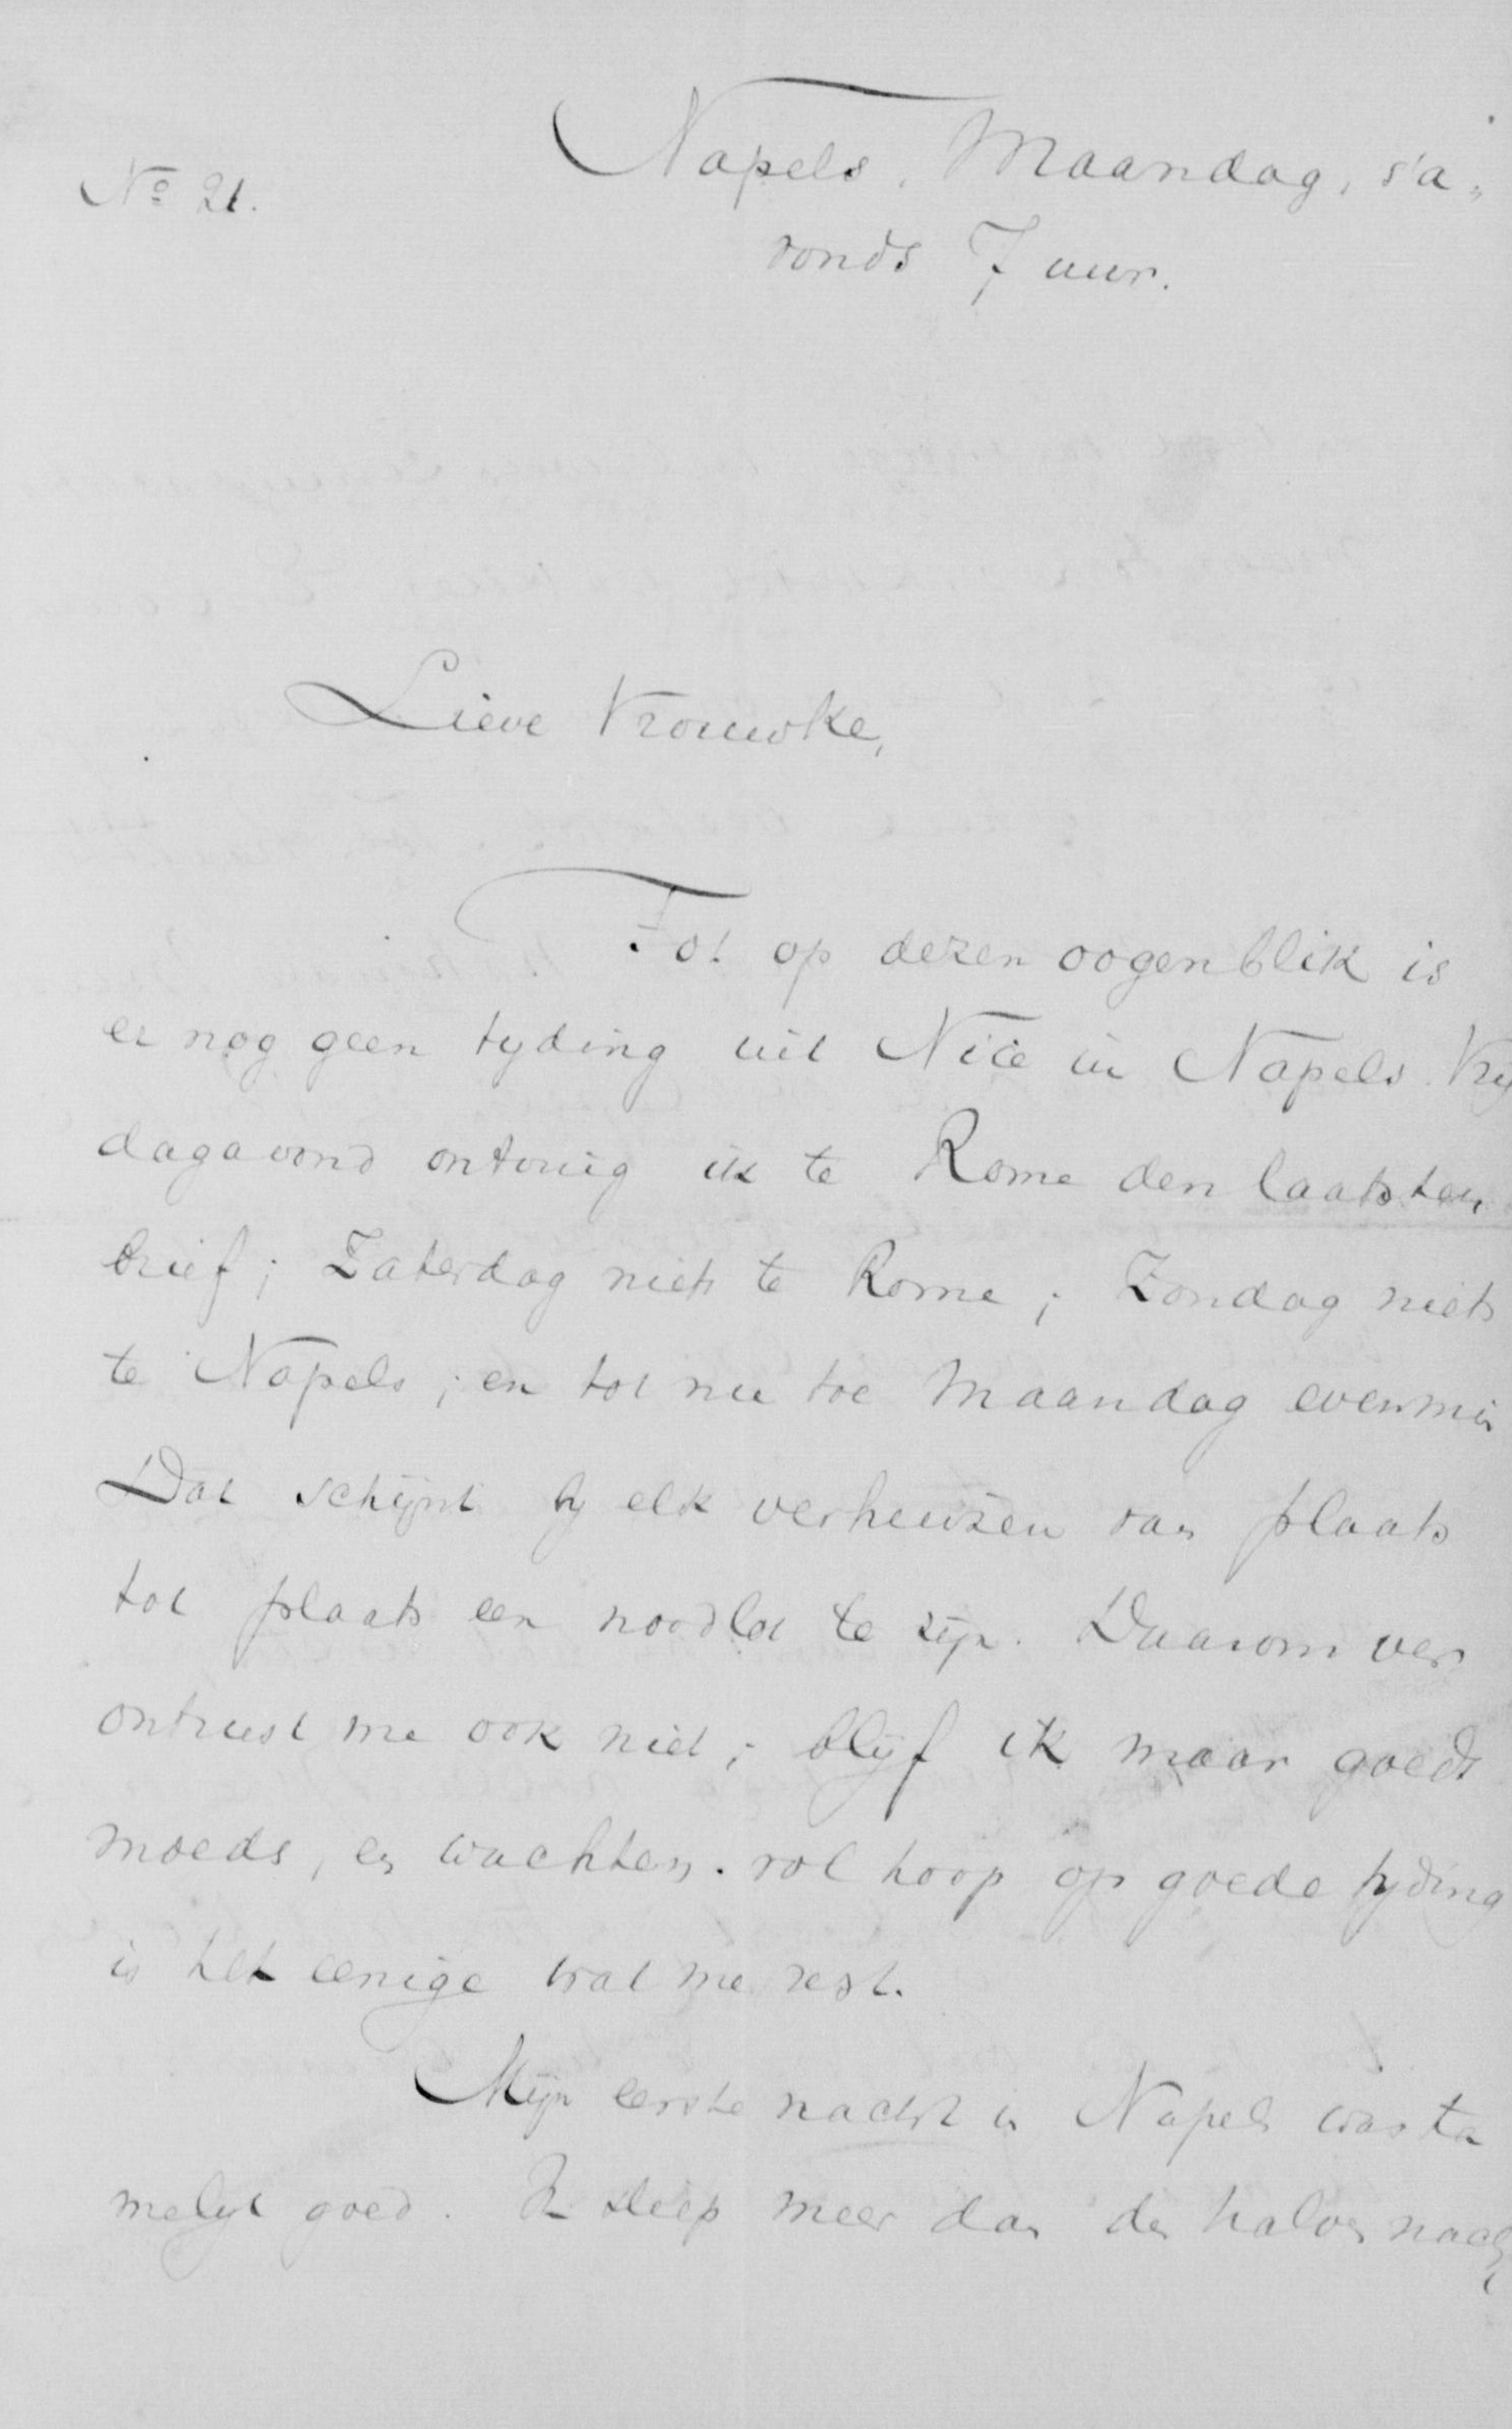 No 21.
Napels, Maandag, s'a„
vonds 7 uur.
Lieve Vrouwke,
Tot op dezen oogenblik is
er nog geen tyding uit Nice in Napels. Vry
dagavond ontving ik te Rome den laatsten
brief; Zaterdag niets te Rome; Zondag niets
te Napels; en tot nu toe Maandag evenmin
Dat schijnt by elk verhuizen van plaats
tot plaats een noodlot te zijn. Daarom ver
ontrust me ook niet; blijf ik maar goeds
moeds, en wachten. vol hoop op goede tyding
is het eenige wat me rest.
Mijn eerste nacht in Napels was ta
melijk goed. Ik sliep meer dan den halven nacht